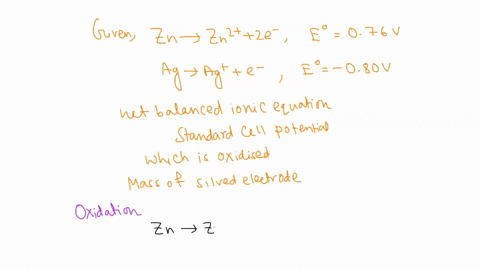 Given, Zn → Zn²⁺ + 2e⁻, E° = 0.76 V
Ag → Ag⁺ + e⁻, E° = -0.80V
net balanced ionic equation
Standard Cell potential
which is oxidised
Mass of silved electrode
Oxidation
Zn → Z